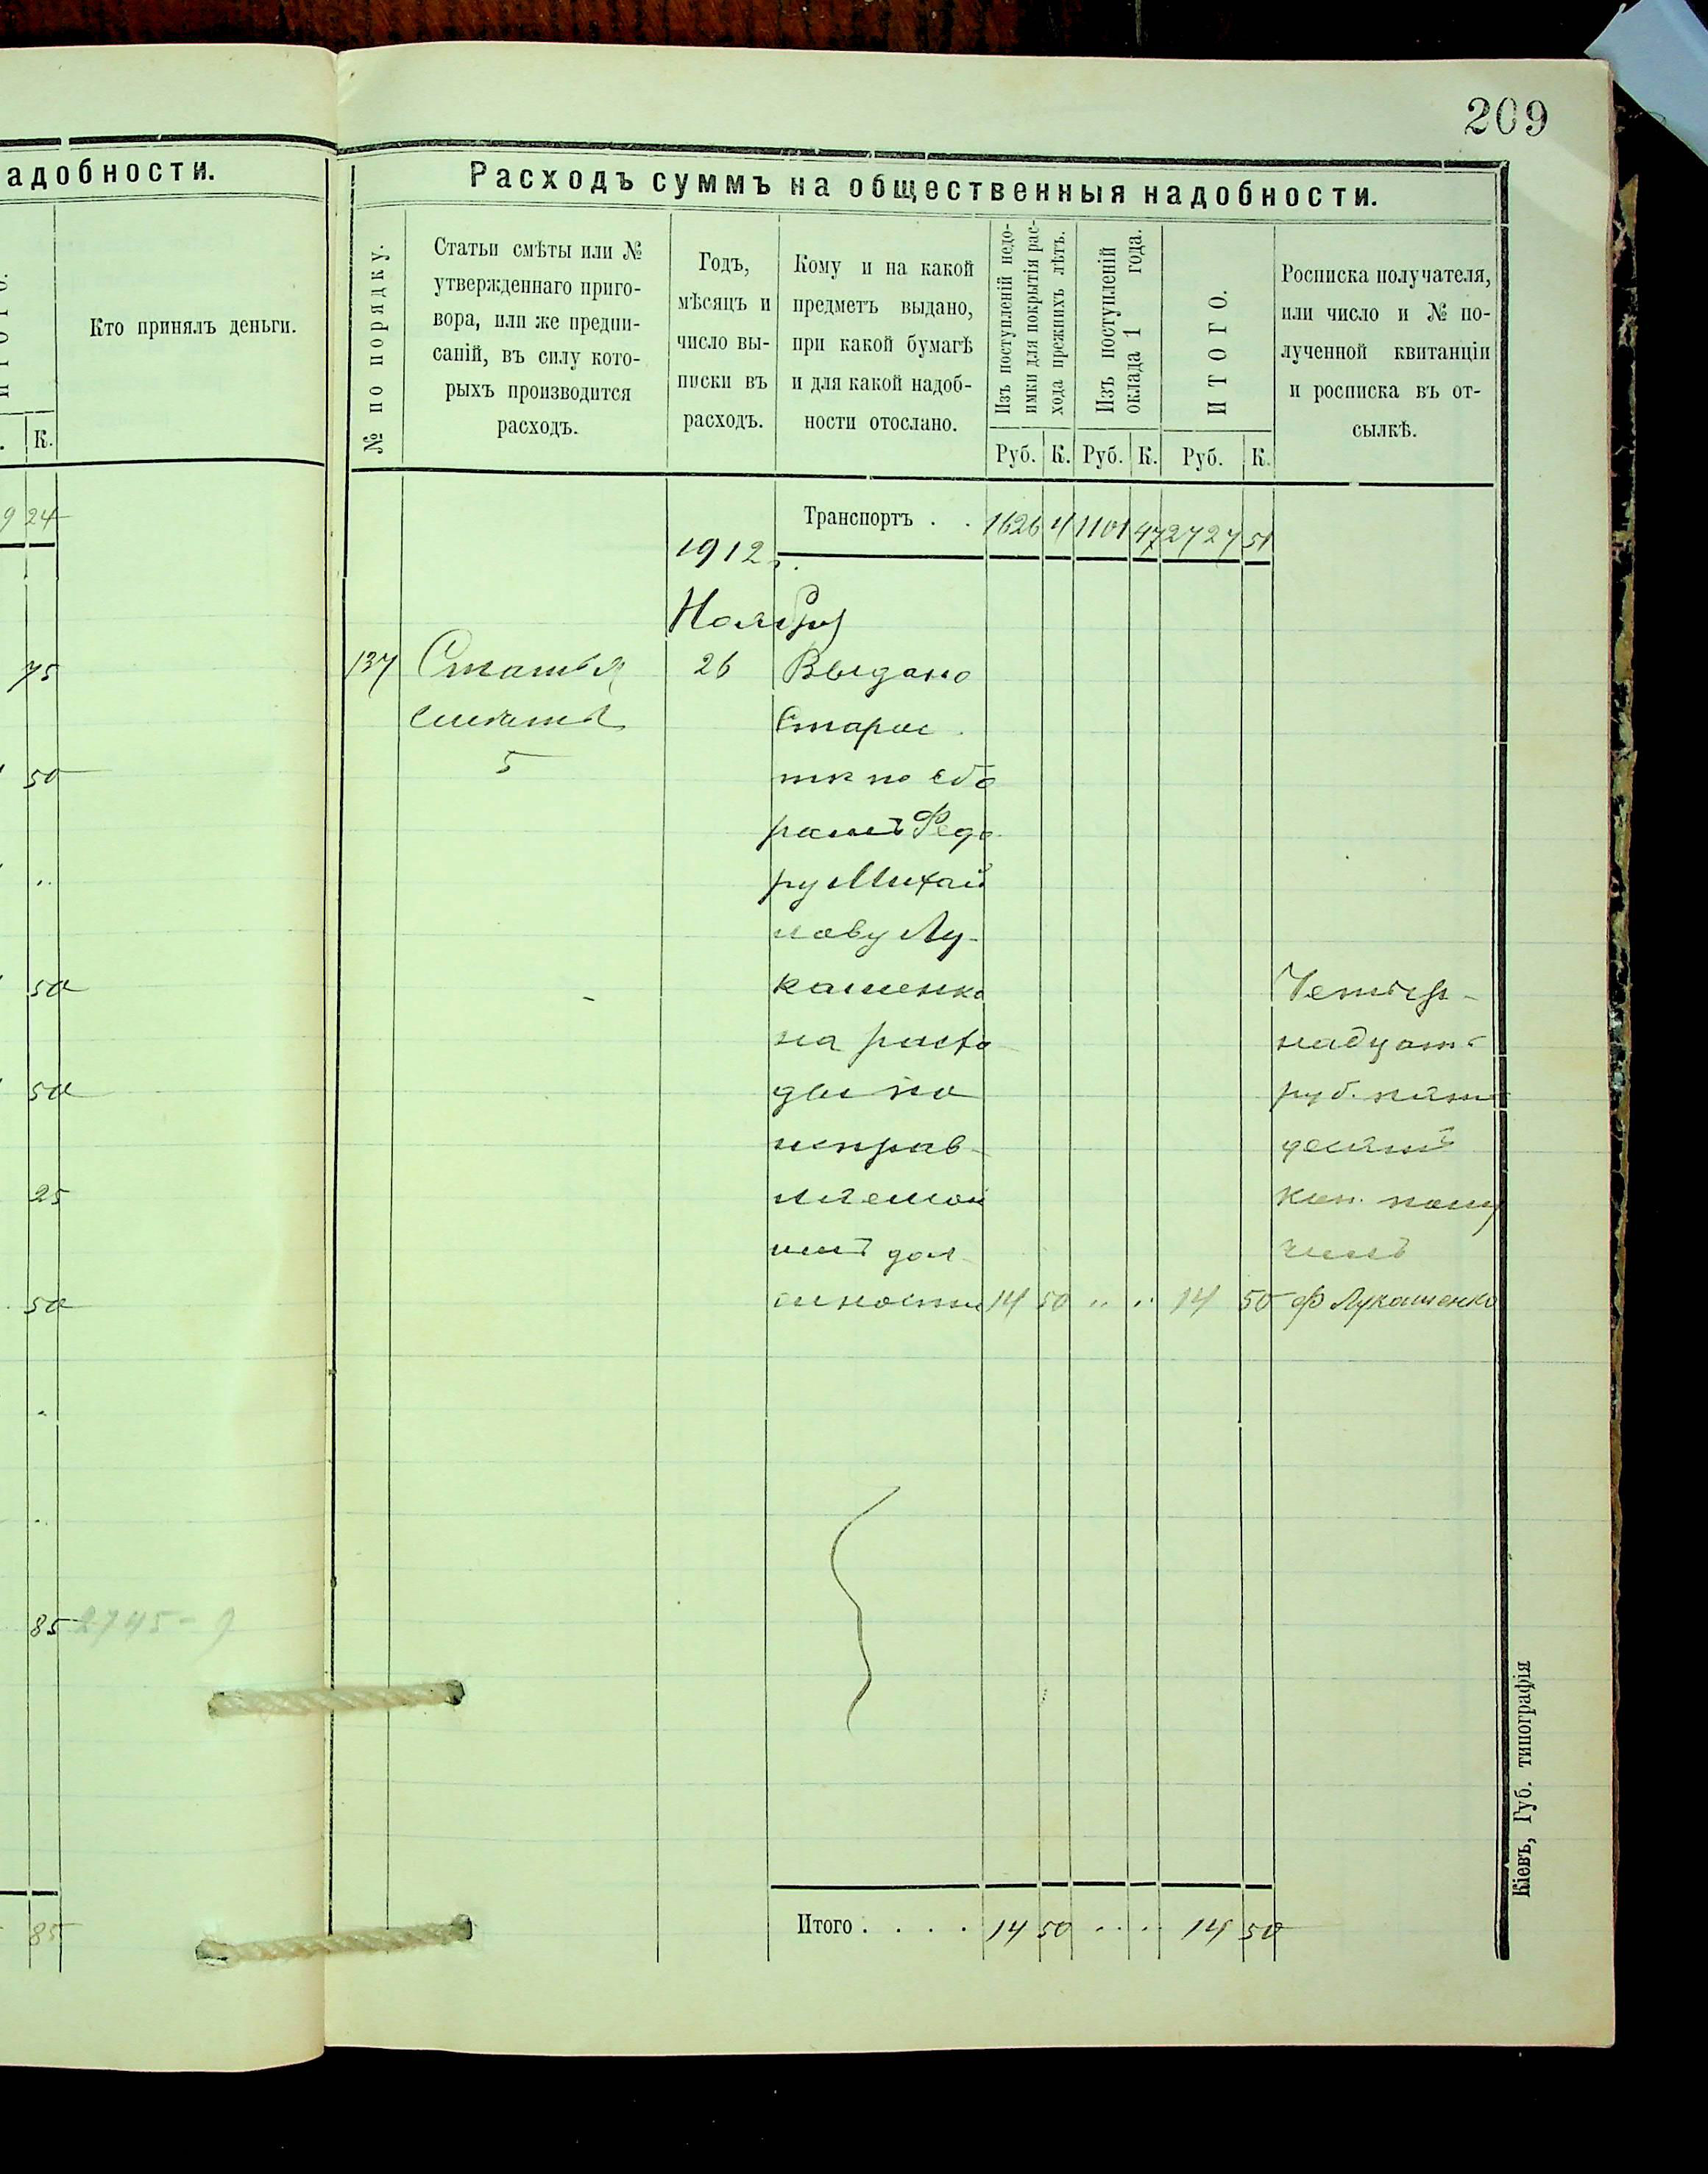 209
адобности.
Кто принялъ деньги.
К.
9 24
75
50
50
50
25
50
85 2745
85
Расходъ суммъ на общественныя надобности.
№ по порядку.
Статьи смѣты или №
утвержденнаго приго-
вора, или же предпи-
саній, въ силу кото-
рыхъ производится
расходъ.
Годъ,
мѣсяцъ и
число вы-
писки въ
расходъ.
Кому и на какой
предметъ выдано,
при какой бумагѣ
и для какой надоб-
ности отослано.
Изъ поступленій недо-
имки для покрытія рас-
хода прежнихъ лѣтъ.
Изъ поступленій
оклада 1 года.
ИТОГО.
Росписка получателя,
или число и № по-
лученной квитанціи
и росписка въ от-
сылкѣ.
Руб. К. Руб. К. Руб. К.
Транспортъ . . 1626 4 1101 47 2727 51
1912 г.
Ноября
137 Статья 26 Выдано
смѣты Старос
5 тѣ по сбо
рамъ Федо
ру Михай
лову Лу-
кашенко Четыр-
на расхо надцать
ды по руб. пять
исправ- десятъ
ляемой коп. полу
имъ дол чилъ
жности 14 50 " " 14 50 Ф Лукашенко
Итого . . . . 14 50 . . . . 14 50
Кіевъ, Губ. типографія